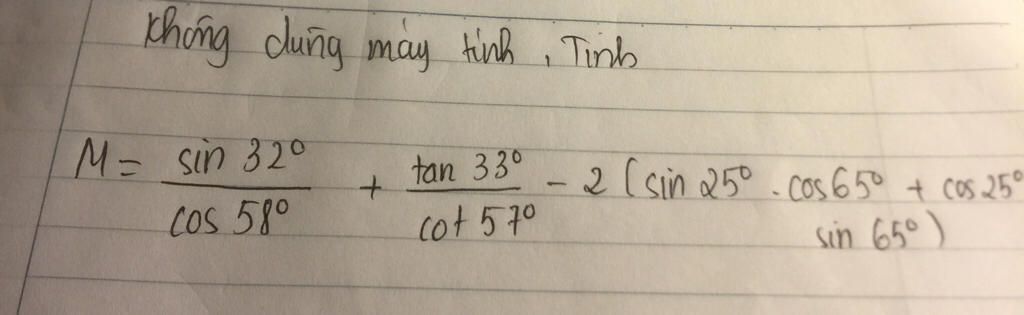 Không dùng máy tính, Tính
M = sin 32° / cos 58° + tan 33° / cot 57° - 2 (sin 25° . cos 65° + cos 25°
sin 65°)